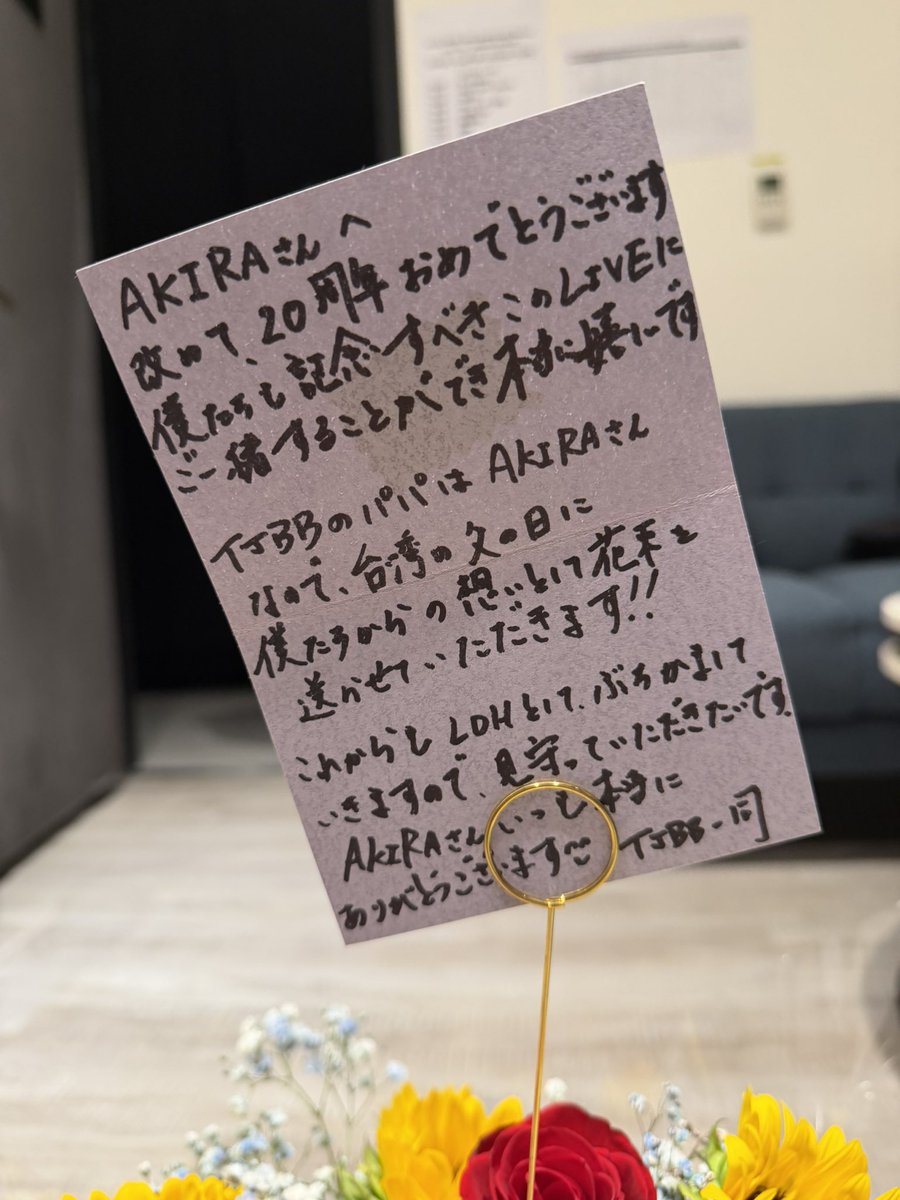 AKIRAさんへ
改めて、20周年おめでとうございます
僕たちも記念すべきこのLIVEに
ご一緒することができ本当に嬉しいです
TJBBのパパはAKIRAさん
なので、台湾の父の日に
僕たちからの想いとして花束を
送らせていただきます!!
これからもLDHとして、ぶちかまして
いきますので、見守っていただきたいです。
AKIRAさんいつも本当に
ありがとうございます TJBB一同